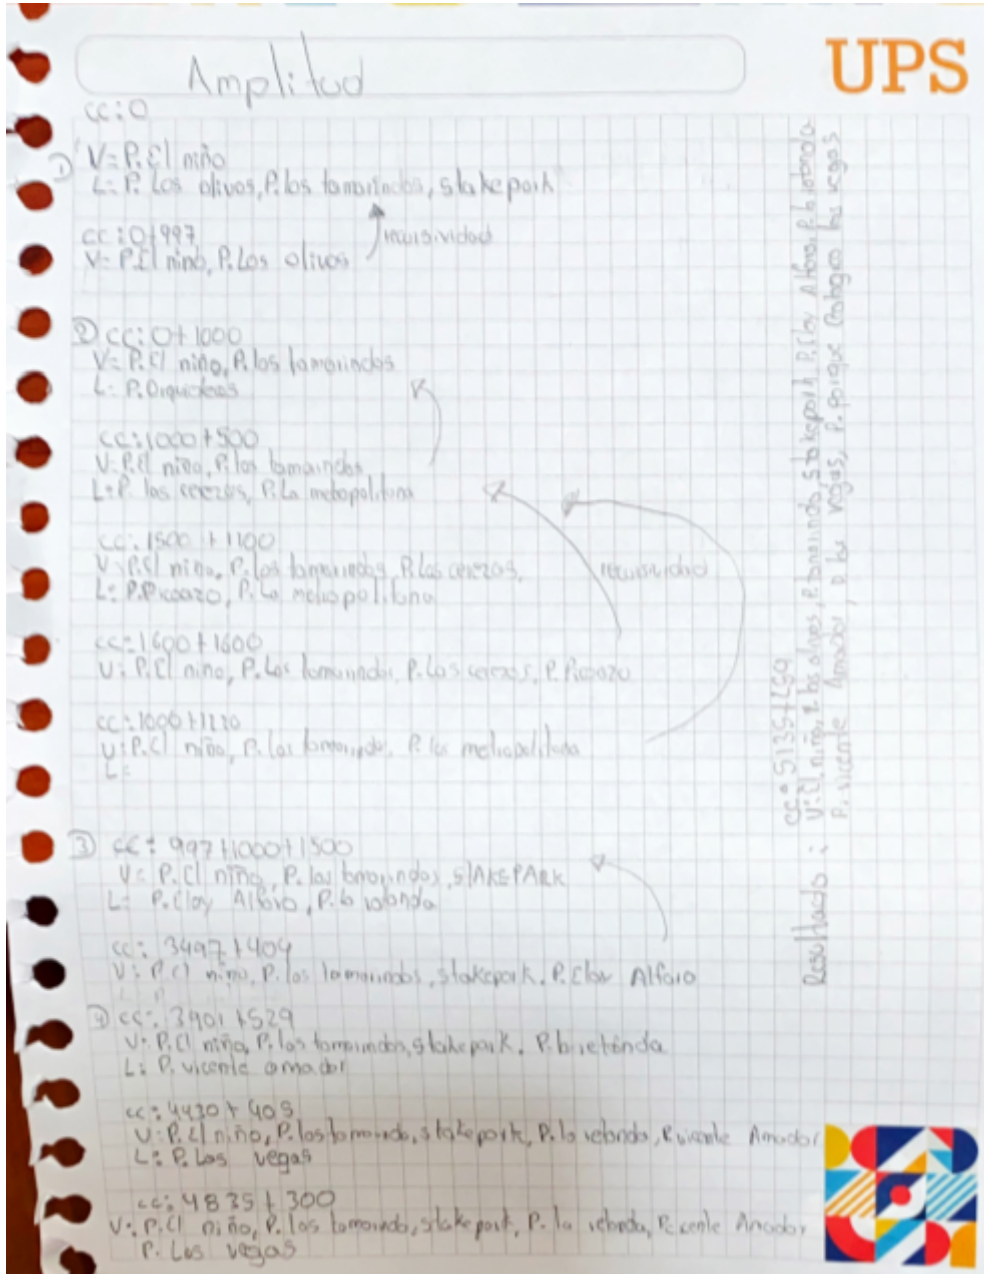 UPS
Amplitud
cc:0
1) V=P.El niño
L: P. Los olivos, P.los tamarindos, stakepark
cc:0+997 recursividad
V= P.El nino, P.Los olivos
2 cc: 0+1000
V= P.El niño, P.los tamarindos
L: P.Orquideas
cc:1000+500
V:P.El niño, P.los tamarindos,
L=P. las cerezas, P.La metropolitana
cc:1500+1100
V:P.El niño, P.los tamarindos, P.Las cerezas,
L: P.Picoazo, P.La metropolitana
recursividad
cc=1600+1600
V: P.El niño, P.Los tamarindos, P.Las cerezas, P.Picoazo
cc:1000+1220
V:P.El niño, P.los tamarindos, P.la metropolitana
L=
3 cc: 997+1000+1500
V= P.El niño, P.los tamarindos, STAKEPARK
L= P.Eloy Alfaro, P.la rotonda
cc: 3497+404
V: P.El niño, P.los tamarindos, stakepark. P.Eloy Alfaro
cc: 3901+529
V: P.El niño, P.los tamarindos, stakepark. P.la retonda
L: P.vicente amador
cc: 4430+405
V:P.El niño, P.los tamarindo, stakepark, P.la retonda, P.vicente Amador
L: P.Las vegas
cc: 4835+300
V: P.El niño, P.los tamarindo, stakepark, P. la retonda, P. Amador
P. Las vegas
Resultado: cc= 5135+
V: El niño, P. los olivos, P. tamarindo, stakepark, P. Eloy Alfaro, P.la rotonda
P. vicente Amador, P. las vegas, P. parque las vegas